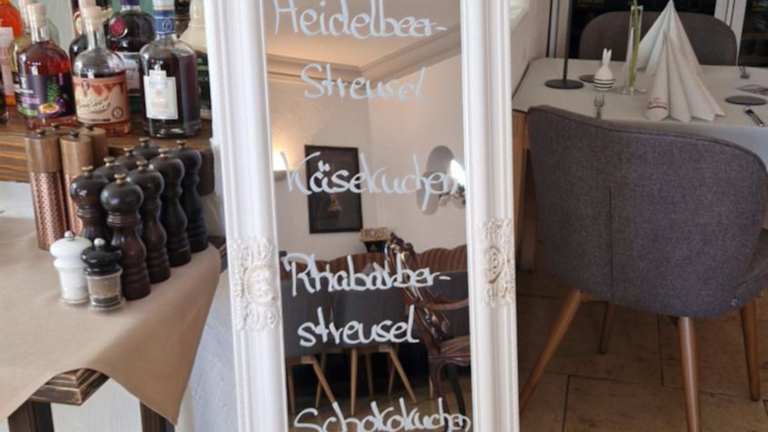 Heidelbeer-
Streusel
Käsekuchen
Rhabarber-
streusel
Schokokuchen